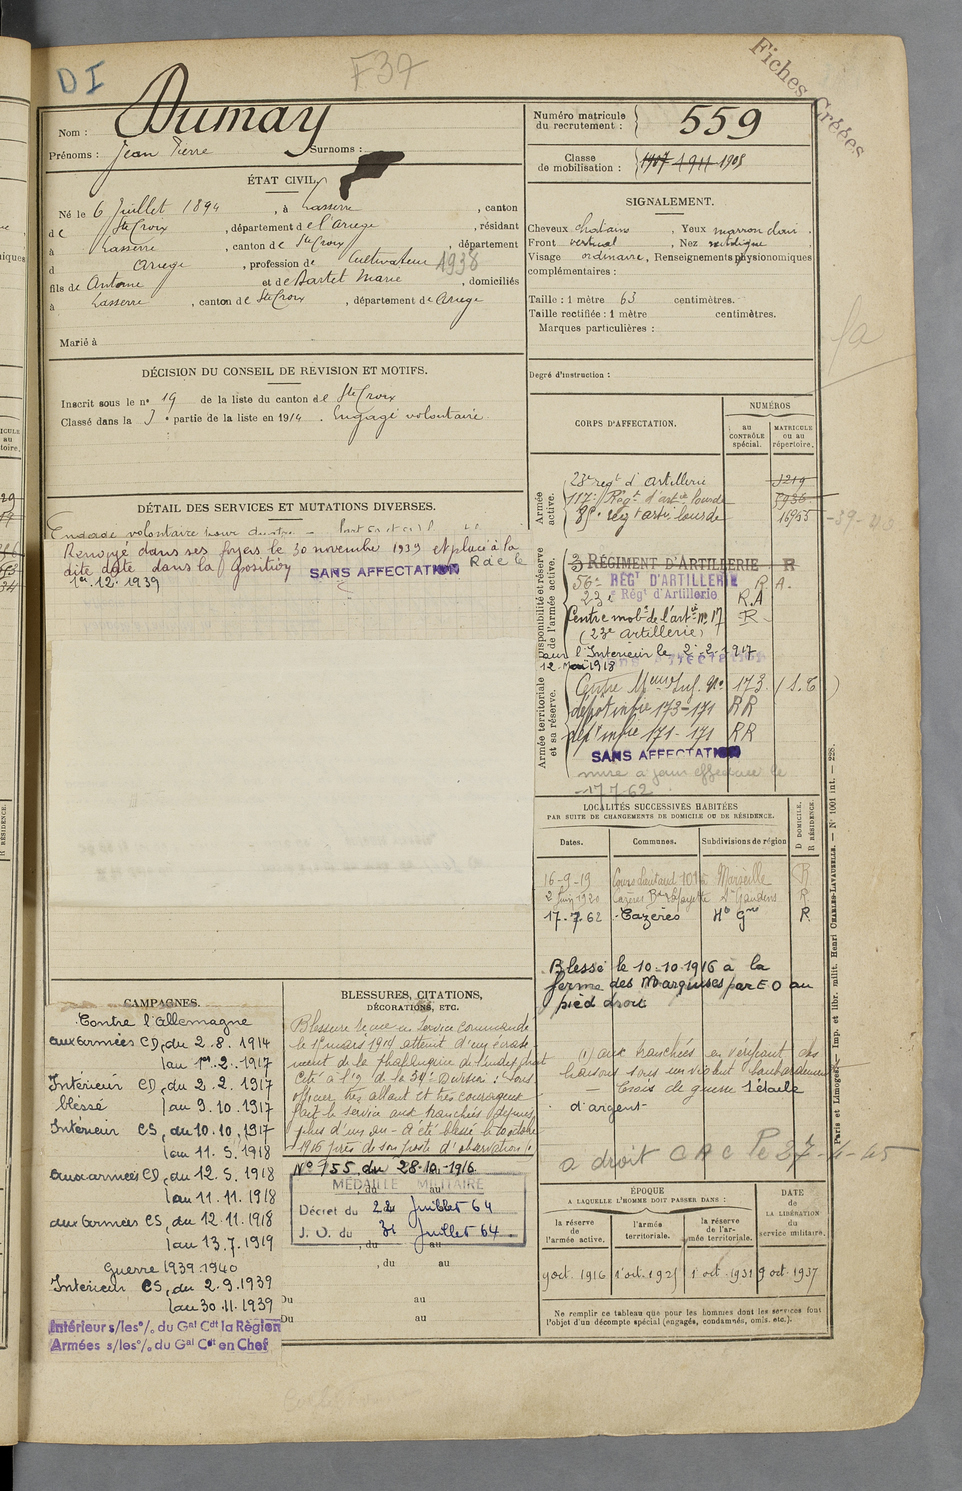 DI
F37
Fiches Créées
Nom : Dumay
Prénoms : Jean Pierre Surnoms :
Numéro matricule du recrutement : 559
Classe de mobilisation : 1907 1911 1908
ÉTAT CIVIL
Né le 6 Juillet 1894, à Lasserre, canton
de Ste Croix, département de l'Ariège, résidant
à Lasserre, canton de Ste Croix, département
d Ariège, profession de Cultivateur 1938
fils de Antoine et de Dartet Marie, domiciliés
à Lasserre, canton de Ste Croix, département de Ariège
Marié à
SIGNALEMENT.
Cheveux chatain, Yeux marron clair.
Front vertical, Nez rectiligne
Visage ordinaire, Renseignements physionomiques
complémentaires :
Taille : 1 mètre 63 centimètres.
Taille rectifiée : 1 mètre centimètres.
Marques particulières :
Degré d'instruction :
DÉCISION DU CONSEIL DE REVISION ET MOTIFS.
Inscrit sous le n° 19 de la liste du canton de Ste Croix
Classé dans la 3e partie de la liste en 1914. Engagé volontaire
DÉTAIL DES SERVICES ET MUTATIONS DIVERSES.
Engagé volontaire pour
Renvoyé dans ses foyers le 30 novembre 1939 et placé à la
dite date dans la position SANS AFFECTATION R de le
1er.12.1939
CORPS D'AFFECTATION.
NUMÉROS
au CONTRÔLE spécial.
MATRICULE ou au répertoire.
Armée active.
23e regt d'artillerie 1219
117e Regt d'artie lourde 5936
regt artie lourde 16955
Disponibilité et réserve de l'armée active.
3 RÉGIMENT D'ARTILLERIE R
56e RÉGt D'ARTILLERIE R A.
23e Régt d'Artillerie R.A
Centre mobe de l'artie n° 17 R
(23e Artillerie)
l'Intérieur le 2-2-1917
12 Mai 1918
Armée territoriale et sa réserve.
Centre Meur Inf. N° 173. (S.E)
dépot infie 173-171 RR
dépt infie 171-171 RR
SANS AFFECTATION
mise a jour effectuée le
17.7.62
LOCALITÉS SUCCESSIVES HABITÉES
PAR SUITE DE CHANGEMENTS DE DOMICILE OU DE RÉSIDENCE.
Dates. Communes. Subdivisions de région D DOMICILE. R RÉSIDENCE.
16-9-19 Cours Lieutaud 101 Marseille R
2 Juin 1920 Cazères Bd Lafayette St Gaudens R
17.7.62 Cazères Hte Gne R
Blessé le 10-10-1916 à la
ferme des Marquises par E O au
pied droit
(1) aux tranchées en vérifiant des
liaisons sous un violent bombardement
— Croix de guerre 1 étoile
d'argent
CAMPAGNES.
Contre l'Allemagne
aux armées CD, du 2.8.1914
au 1er.2.1917
Intérieur CD, du 2.2.1917
blessé au 9.10.1917
Intérieur CS, du 10.10.1917
au 11.5.1918
aux armées CD, du 12.5.1918
au 11.11.1918
aux armées CS, du 12.11.1918
au 13.7.1919
Guerre 1939-1940
Intérieur CS, du 2.9.1939
au 30.11.1939
Intérieur s/les °/. du Gal Cdt la Région
Armées s/les °/. du Gal Cdt en Chef
BLESSURES, CITATIONS,
DÉCORATIONS, ETC.
Blessure reçue en service commandé
le 1er mars 1914 atteint d'un écrase-
ment de la phalangine de l'index droit
Cité à l'O de la 34e Division : Sous
officier très allant et très courageux
fait le service aux tranchées depuis
plus d'un an - a été blessé le 10 octobre
1916 près de son poste d'observation (1
N° 155 du 28-10-1916
MÉDAILLE MILITAIRE
Décret du 22 Juillet 64
J. O. du 31 Juillet 64
, du au
Du au
Du au
a droit CAC le 27-4-45
ÉPOQUE
A LAQUELLE L'HOMME DOIT PASSER DANS :
la réserve de l'armée active. l'armée territoriale. la réserve de l'armée territoriale.
DATE de LA LIBÉRATION du service militaire.
9 oct. 1916 1 oct. 1921 1 oct. 1931 9 oct. 1937
Ne remplir ce tableau que pour les hommes dont les services font
l'objet d'un décompte spécial (engagés, condamnés, omis, etc.).
Paris et Limoges. — Imp. et libr. milit. Henri CHARLES-LAVAUZELLE. — N° 1001 int. — 228.